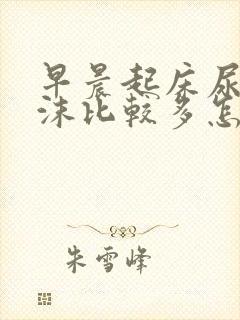 早晨起床尿
沫比较多怎
朱雪峰